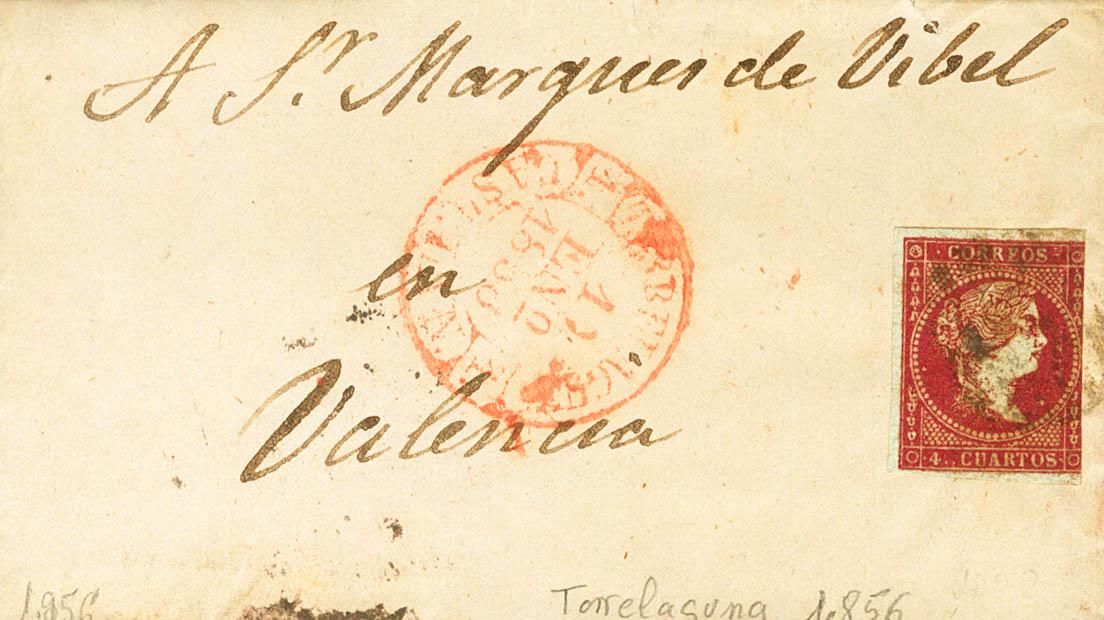 A Sr. Marques de Vibel
en
Valencia
CORREOS
4.. CUARTOS
1.856
Torrelaguna 1.856